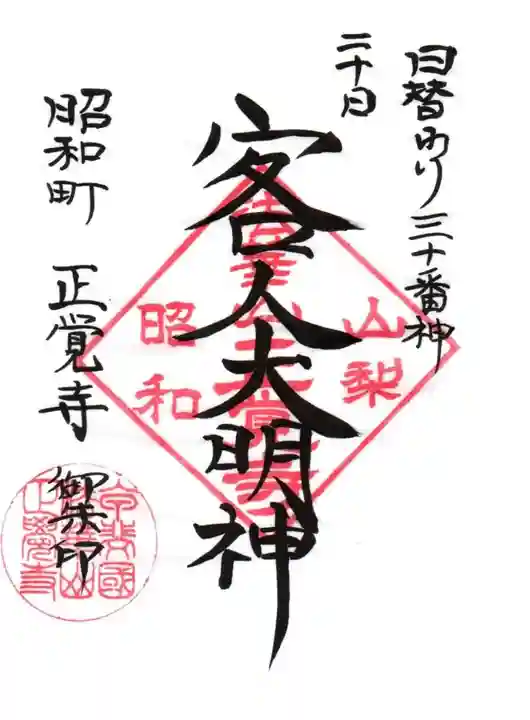 日替わり三十番神
二十日
客人大明神
山梨
昭和
正覚寺
昭和町 正覚寺
御朱印